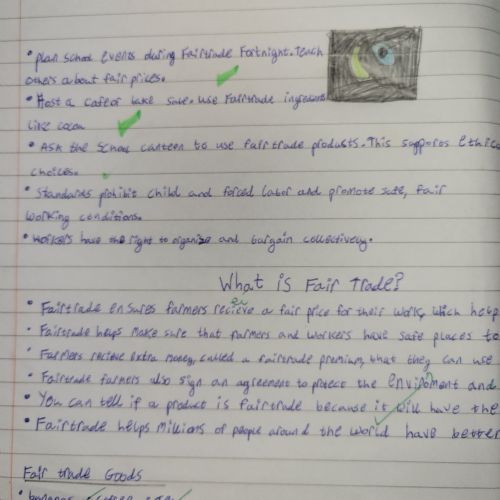 • plan school events during Fairtrade Fortnight. Teach
others about fair prices.
• Host a cafe or bake sale. Use Fairtrade ingredients
like cocoa
• Ask the school canteen to use fairtrade products. This supporos ethica
choices.
• Standards prohibit child and forced labor and promote safe, fair
working conditions.
• workers have the right to organize and bargain collectively.
What is Fair Trade?
• Fairtrade ensures farmers recieve a fair price for their work, wich help
• Fairtrade helps make sure that farmers and workers have safe places to
• Farmers recieve extra money, called a fairtrade premium, that they can use
• Fairtrade farmers also sign an agreement to protect the enviroment and
• You can tell if a product is fairtrade because it will have the
• Fairtrade helps millions of people around the world have better
Fair trade Goods
• bananas